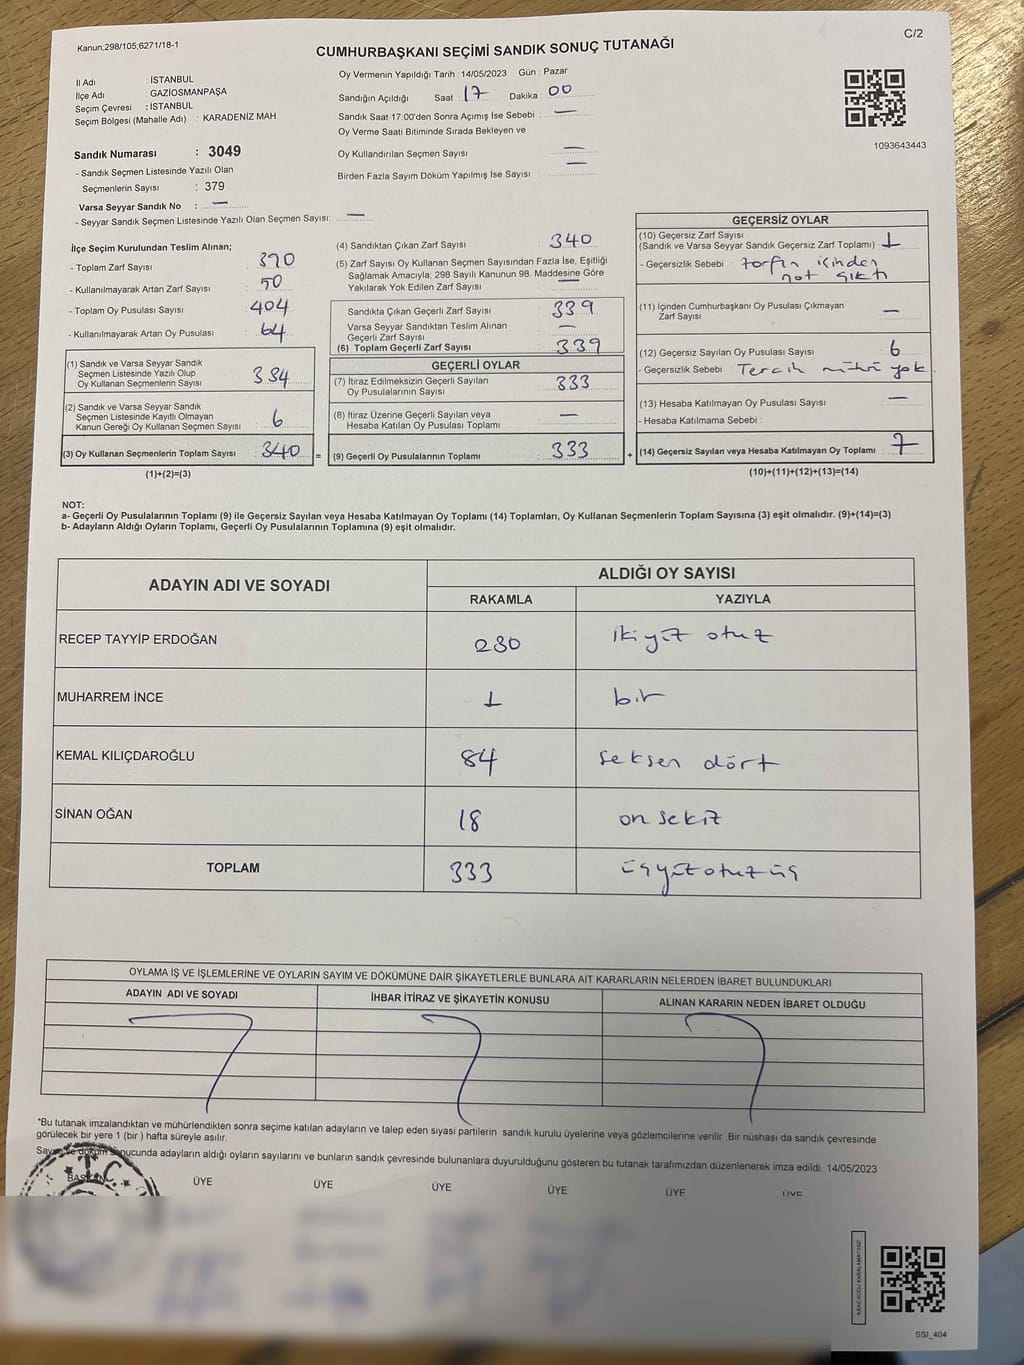 Kanun;298/105;6271/18-1
C/2
CUMHURBAŞKANI SEÇİMİ SANDIK SONUÇ TUTANAĞI
İl Adı : İSTANBUL
İlçe Adı : GAZİOSMANPAŞA
Seçim Çevresi : İSTANBUL
Seçim Bölgesi (Mahalle Adı) : KARADENİZ MAH.
Sandık Numarası : 3049
- Sandık Seçmen Listesinde Yazılı Olan
Seçmenlerin Sayısı : 379
Varsa Seyyar Sandık No : —
- Seyyar Sandık Seçmen Listesinde Yazılı Olan Seçmen Sayısı: —
Oy Vermenin Yapıldığı Tarih : 14/05/2023 Gün : Pazar
Sandığın Açıldığı Saat : 17 Dakika : 00
Sandık Saat 17:00'den Sonra Açımış İse Sebebi : —
Oy Verme Saati Bitiminde Sırada Bekleyen ve
Oy Kullandırılan Seçmen Sayısı : —
Birden Fazla Sayım Döküm Yapılmış İse Sayısı : —
1093643443
İlçe Seçim Kurulundan Teslim Alınan;
- Toplam Zarf Sayısı : 390
- Kullanılmayarak Artan Zarf Sayısı : 50
- Toplam Oy Pusulası Sayısı : 404
- Kullanılmayarak Artan Oy Pusulası : 64
(1) Sandık ve Varsa Seyyar Sandık
Seçmen Listesinde Yazılı Olup
Oy Kullanan Seçmenlerin Sayısı : 334
(2) Sandık ve Varsa Seyyar Sandık
Seçmen Listesinde Kayıtlı Olmayan
Kanun Gereği Oy Kullanan Seçmen Sayısı : 6
(3) Oy Kullanan Seçmenlerin Toplam Sayısı : 340 =
(1)+(2)=(3)
(4) Sandıktan Çıkan Zarf Sayısı : 340
(5) Zarf Sayısı Oy Kullanan Seçmen Sayısından Fazla İse, Eşitliği
Sağlamak Amacıyla; 298 Sayılı Kanunun 98. Maddesine Göre
Yakılarak Yok Edilen Zarf Sayısı : —
Sandıkta Çıkan Geçerli Zarf Sayısı : 339
Varsa Seyyar Sandıktan Teslim Alınan
Geçerli Zarf Sayısı : —
(6) Toplam Geçerli Zarf Sayısı : 339
GEÇERLİ OYLAR
(7) İtiraz Edilmeksizin Geçerli Sayılan
Oy Pusulasının Sayısı : 333
(8) İtiraz Üzerine Geçerli Sayılan veya
Hesaba Katılan Oy Pusulası Toplamı : —
(9) Geçerli Oy Pusulalarının Toplamı : 333 +
GEÇERSİZ OYLAR
(10) Geçersiz Zarf Sayısı
(Sandık ve Varsa Seyyar Sandık Geçersiz Zarf Toplamı) : 1
- Geçersizlik Sebebi : zarfın içinden
not çıktı
(11) İçinden Cumhurbaşkanı Oy Pusulası Çıkmayan
Zarf Sayısı : —
(12) Geçersiz Sayılan Oy Pusulası Sayısı : 6
- Geçersizlik Sebebi : Tercih mührü yok
(13) Hesaba Katılmayan Oy Pusulası Sayısı : —
- Hesaba Katılmama Sebebi :
(14) Geçersiz Sayılan veya Hesaba Katılmayan Oy Toplamı : 7
(10)+(11)+(12)+(13)=(14)
NOT:
a- Geçerli Oy Pusulalarının Toplamı (9) ile Geçersiz Sayılan veya Hesaba Katılmayan Oy Toplamı (14) Toplamları, Oy Kullanan Seçmenlerin Toplam Sayısına (3) eşit olmalıdır. (9)+(14)=(3)
b- Adayların Aldığı Oyların Toplamı, Geçerli Oy Pusulalarının Toplamına (9) eşit olmalıdır.
ADAYIN ADI VE SOYADI
ALDIĞI OY SAYISI
RAKAMLA YAZIYLA
RECEP TAYYİP ERDOĞAN 230 ikiyüz otuz
MUHARREM İNCE 1 bir
KEMAL KILIÇDAROĞLU 84 seksen dört
SİNAN OĞAN 18 on sekiz
TOPLAM 333 üçyüzotuzüç
OYLAMA İŞ VE İŞLEMLERİNE VE OYLARIN SAYIM VE DÖKÜMÜNE DAİR ŞİKAYETLERLE BUNLARA AİT KARARLARIN NELERDEN İBARET BULUNDUKLARI
ADAYIN ADI VE SOYADI İHBAR İTİRAZ VE ŞİKAYETİN KONUSU ALINAN KARARIN NEDEN İBARET OLDUĞU
*Bu tutanak imzalandıktan ve mühürlendikten sonra seçime katılan adayların ve talep eden siyasi partilerin sandık kurulu üyelerine veya gözlemcilerine verilir. Bir nüshası da sandık çevresinde
görülecek bir yere 1 (bir) hafta süreyle asılır.
Sayım ve döküm sonucunda adayların aldığı oyların sayılarını ve bunların sandık çevresinde bulunanlara duyurulduğunu gösteren bu tutanak tarafımızdan düzenlenerek imza edildi. 14/05/2023
BAŞKAN ÜYE ÜYE ÜYE ÜYE ÜYE ÜYE
T.C.
SSI_404